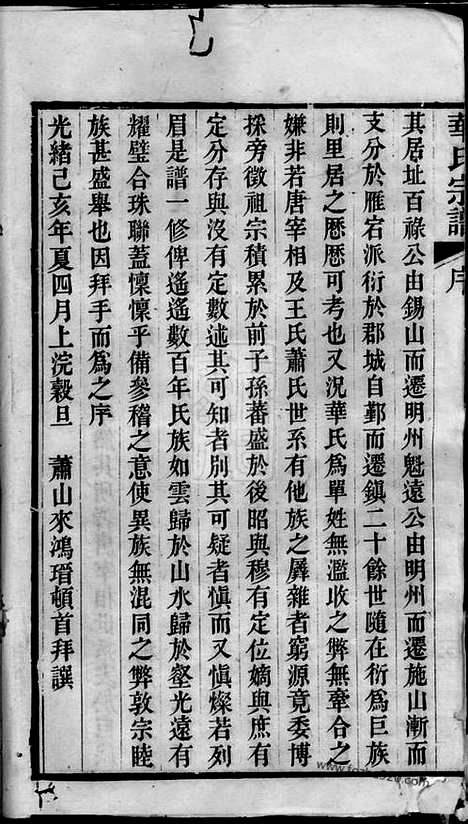 華氏宗譜 序
其居址百祿公由錫山而遷明州魁遠公由明州而遷施山漸而
支分於雁宕派衍於郡城自鄞而遷鎮二十餘世隨在衍為巨族
則里居之歷歷可考也又況華氏為單姓無濫收之弊無牽合之
嫌非若唐宰相及王氏蕭氏世系有他族之羼雜者窮源竟委博
採旁徵祖宗積累於前子孫蕃盛於後昭與穆有定位嫡與庶有
定分存與沒有定數述其可知者別其可疑者慎而又慎燦若列
眉是譜一修俾遙遙數百年氏族如雲歸於山水歸於壑光遠有
耀璧合珠聯蓋懍懍乎備參稽之意使異族無混同之弊敦宗睦
族甚盛舉也因拜手而為之序
光緒己亥年夏四月上浣穀旦 蕭山來鴻瑨頓首拜譔